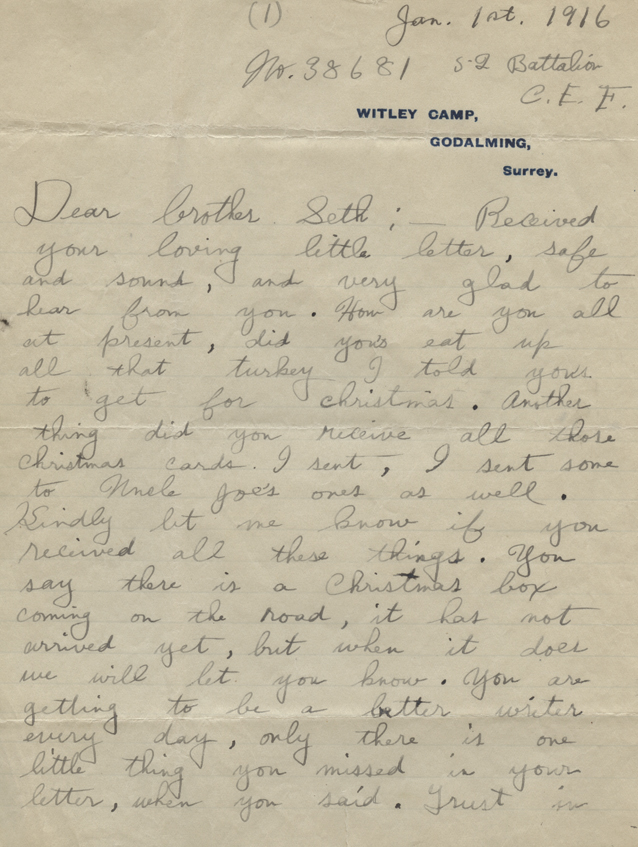 (1)
Jan. 1st. 1916
No. 38681 52 Battalion
C. E. F.
WITLEY CAMP,
GODALMING,
Surrey.
Dear brother Seth; — Received
your loving little letter, safe
and sound, and very glad to
hear from you. How are you all
at present, did yous eat up
all that turkey I told yous
to get for christmas. Another
thing did you receive all those
christmas cards. I sent, I sent some
to Uncle Joe's ones as well.
Kindly let me know if you
received all these things. You
say there is a Christmas box
coming on the road, it has not
arrived yet, but when it does
we will let you know. You are
getting to be a better writer
every day, only there is one
little thing you missed in your
letter, when you said. Trust in